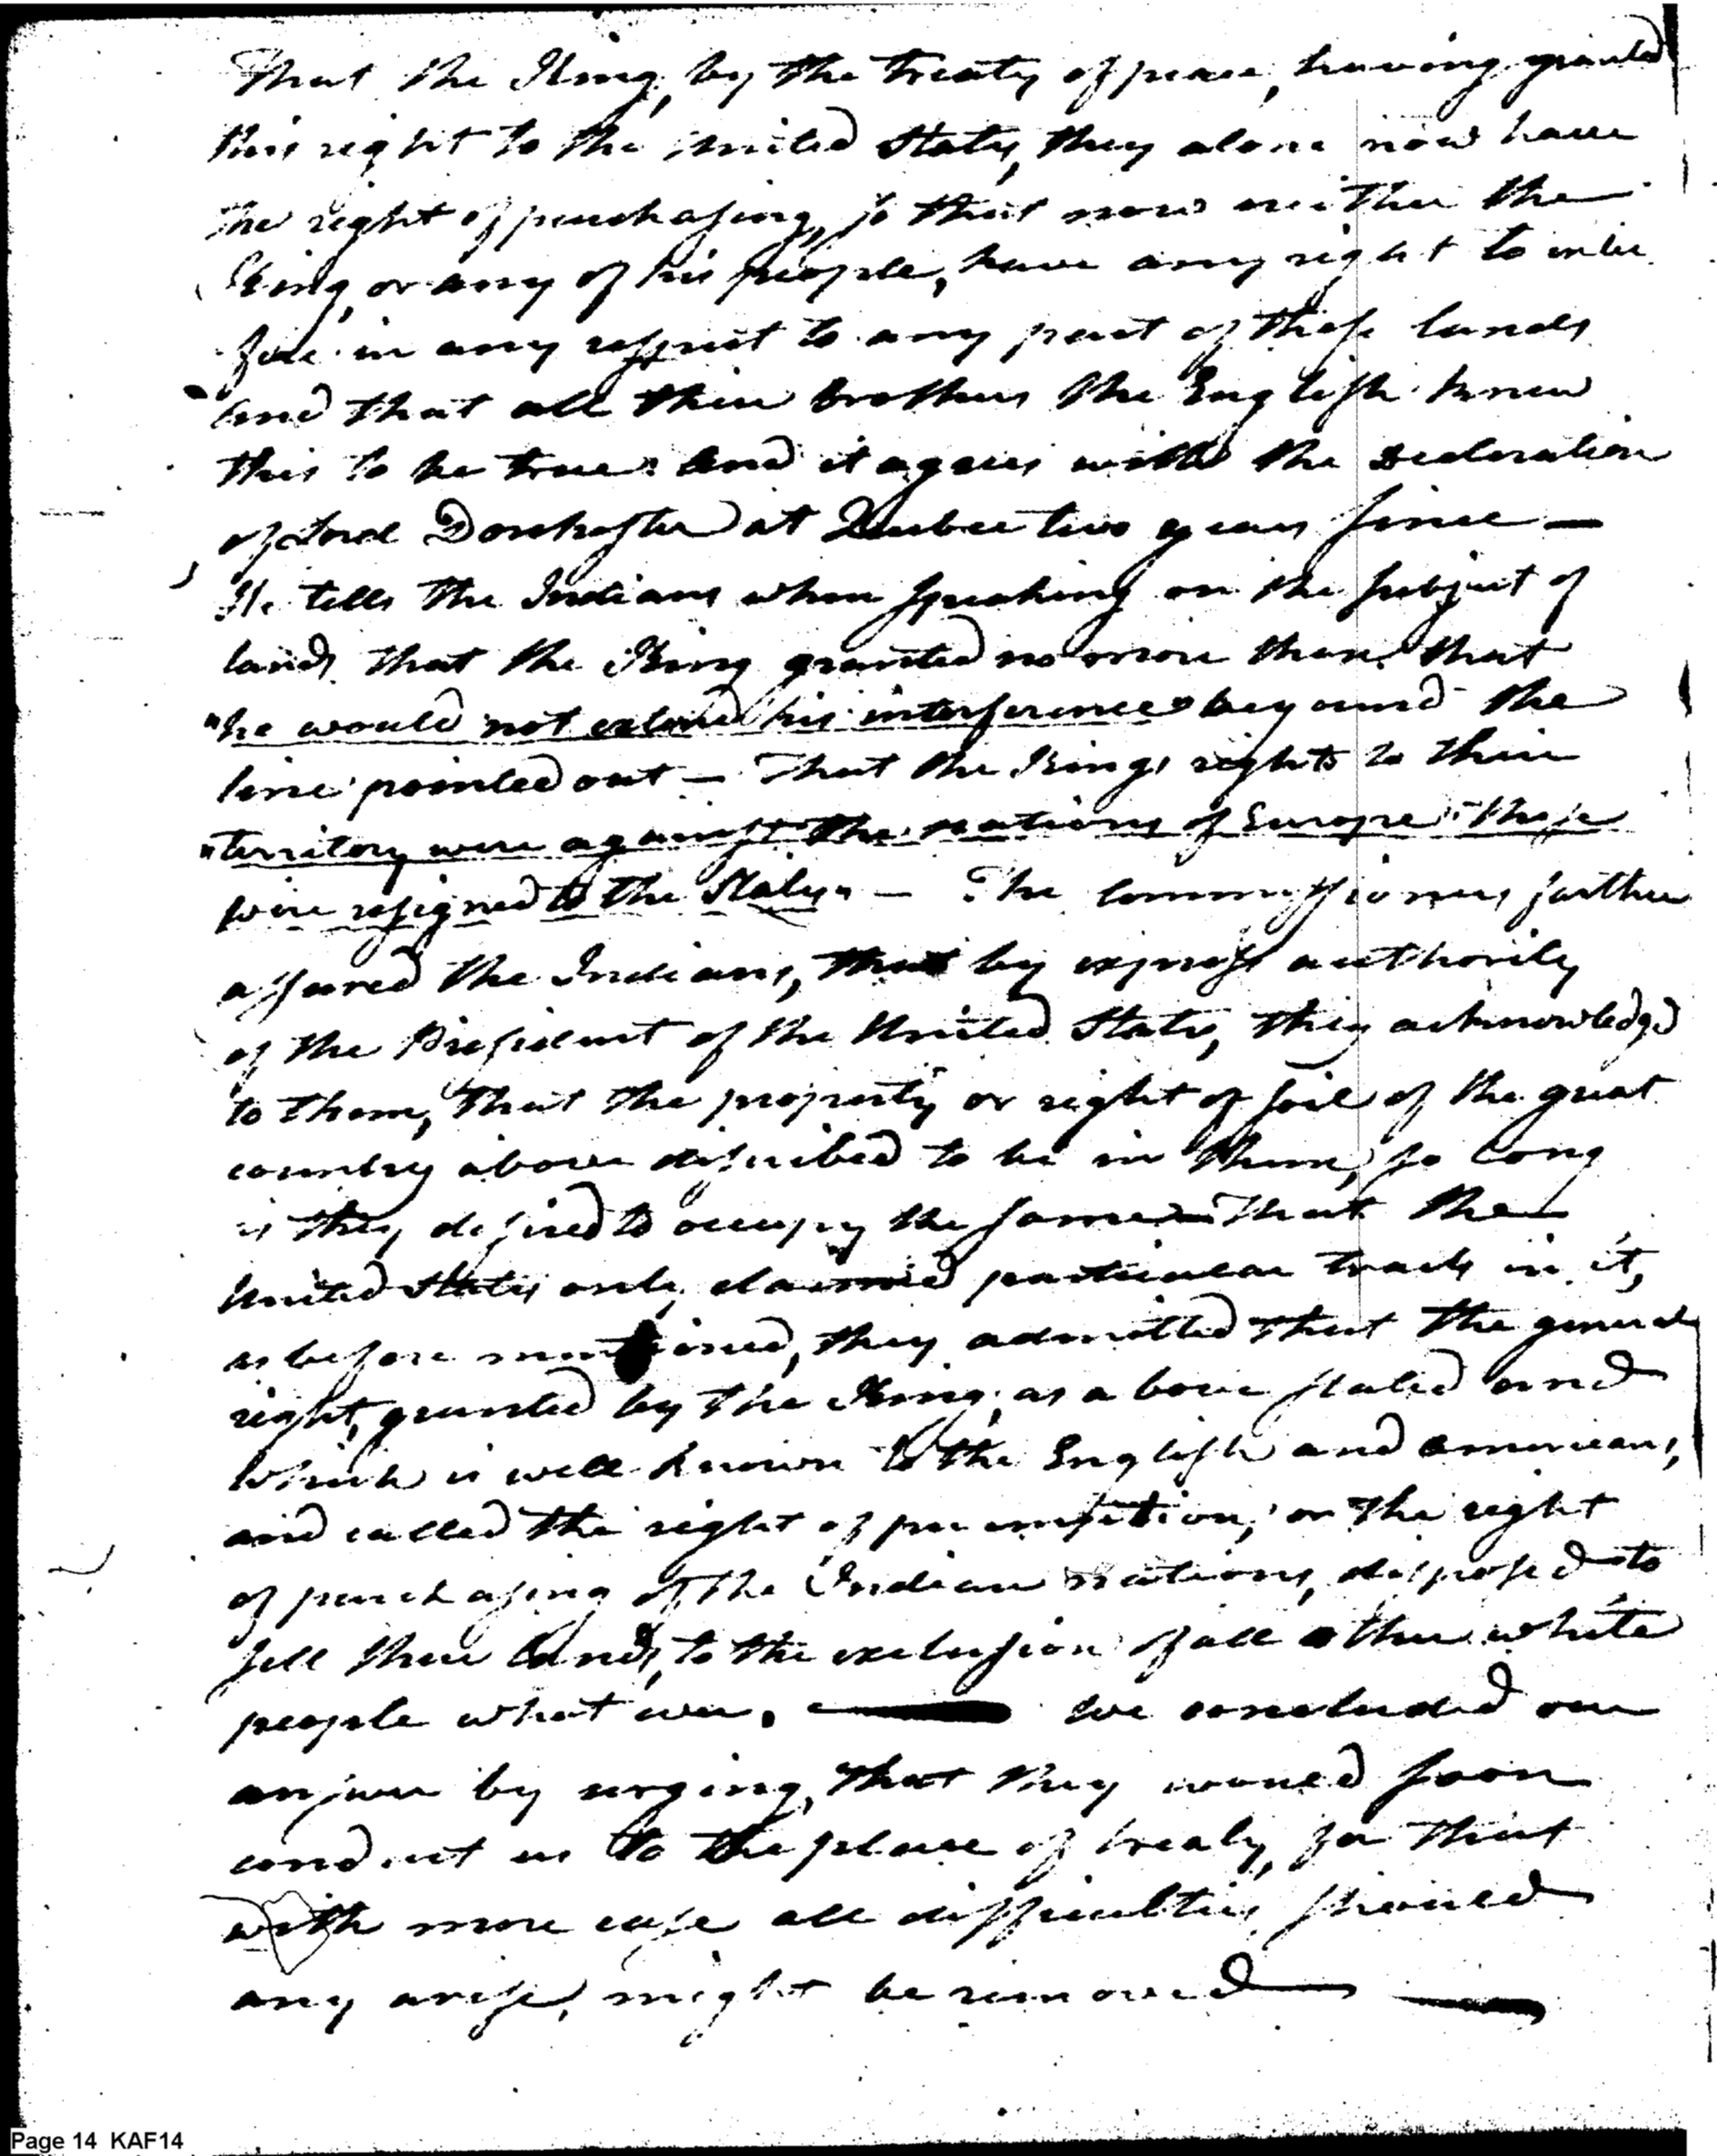 That the King, by the treaty of peace, having granted
this right to the United States, they alone now have
the right of purchasing, so that now neither the
King, or any of his people, have any right to inter
fere in any respect to any part of these lands
and that all their brothers the English knew
this to be true: And it agrees with the Declaration
of Lord Dorchester at Quebec two years since —
He tells the Indians when speaking on the subject of
lands that the King granted no more than that
"he would not extend his interference beyound the
line pointed out — That the Kings rights to their
"territory were against the nations of Europe: these
were resigned to the States" — The Commissioners further
assured the Indians, that by express authority
of the President of the United States, they acknowledged
to them, that the property or right of soil of the great
country above described to be in them, so long
as they desired to occupy the same: That the
United States only claimed particular tracts in it,
as before mentioned, they admitted that the general
right, granted by the King, as above stated and
which is well known to the English and Americans,
and called the right of preemption, or the right
of purchasing of the Indian nations, disposed to
sell their lands, to the exclusion of all other white
people whatever. — We concluded our
answer by urging, that they would soon
conduct us to the place of treaty, for that
with more ease all difficulties should
any arise, might be removed —
Page 14 KAF14